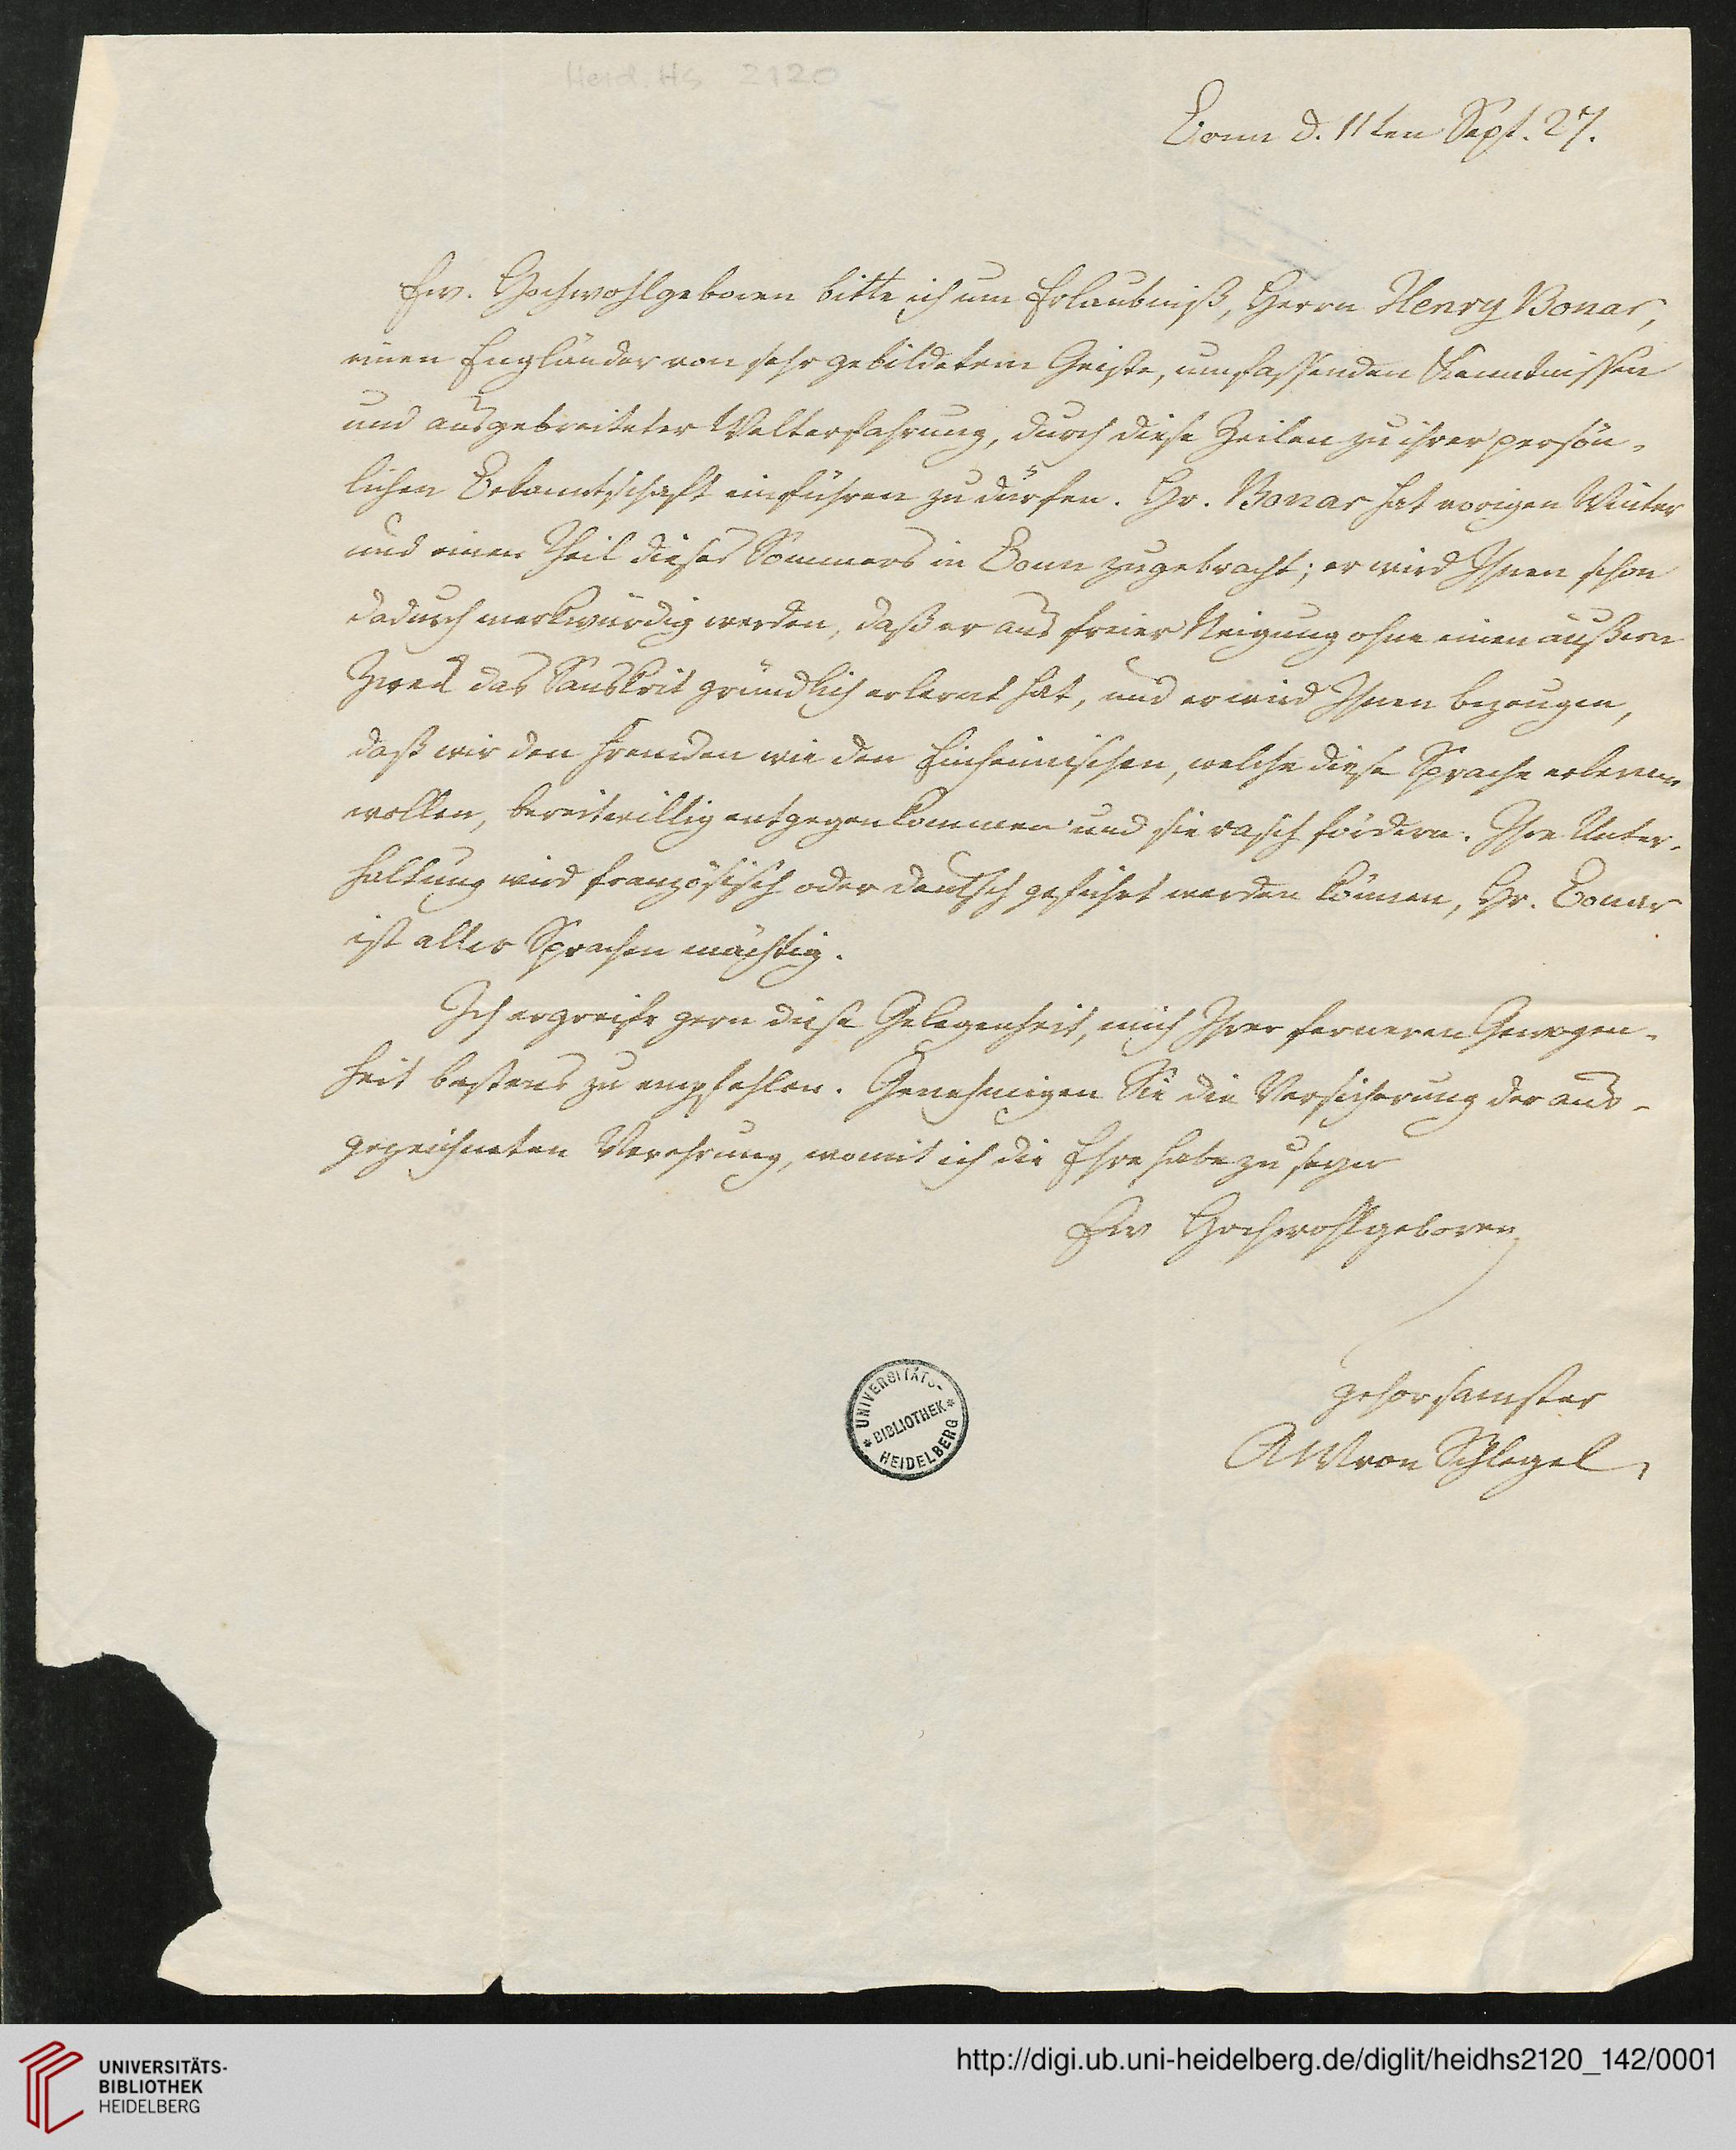 Heid. Hs 2120
Bonn d. 11ten Sept. 27.
Ew. Hochwohlgeboren bitte ich um Erlaubniß, Herrn Henry Bonar,
einen Engländer von sehr gebildetem Geiste, umfassenden Kenntnissen
und ausgebreiteter Welterfahrung, durch diese Zeilen zu ihrer persön-
lichen Bekanntschaft einführen zu dürfen. Hr. Bonar hat vorigen Winter
und einen Theil dieses Sommers in Bonn zugebracht; er wird Ihnen schon
dadurch merkwürdig werden, daß er aus freier Neigung ohne einen äußern
Zweck das Sanskrit gründlich erlernt hat, und er wird Ihnen bezeugen,
daß wir den Fremden wie den Einheimischen, welche diese Sprache erlernen
wollen, bereitwillig entgegenkommen und sie rasch fördern. Ihre Unter-
haltung wird französisch oder deutsch geführt werden können, Hr. Bonar
ist aller Sprachen mächtig.
Ich ergreife gern diese Gelegenheit, mich Ihrer ferneren Gewogen-
heit bestens zu empfehlen. Genehmigen Sie die Versicherung der aus-
gezeichneten Verehrung, womit ich die Ehre habe zu seyn
Ew Hochwohlgeboren
gehorsamster
AW von Schlegel
UNIVERSITÄTS-
* BIBLIOTHEK *
HEIDELBERG
UNIVERSITÄTS-
BIBLIOTHEK
HEIDELBERG
http://digi.ub.uni-heidelberg.de/diglit/heidhs2120_142/0001